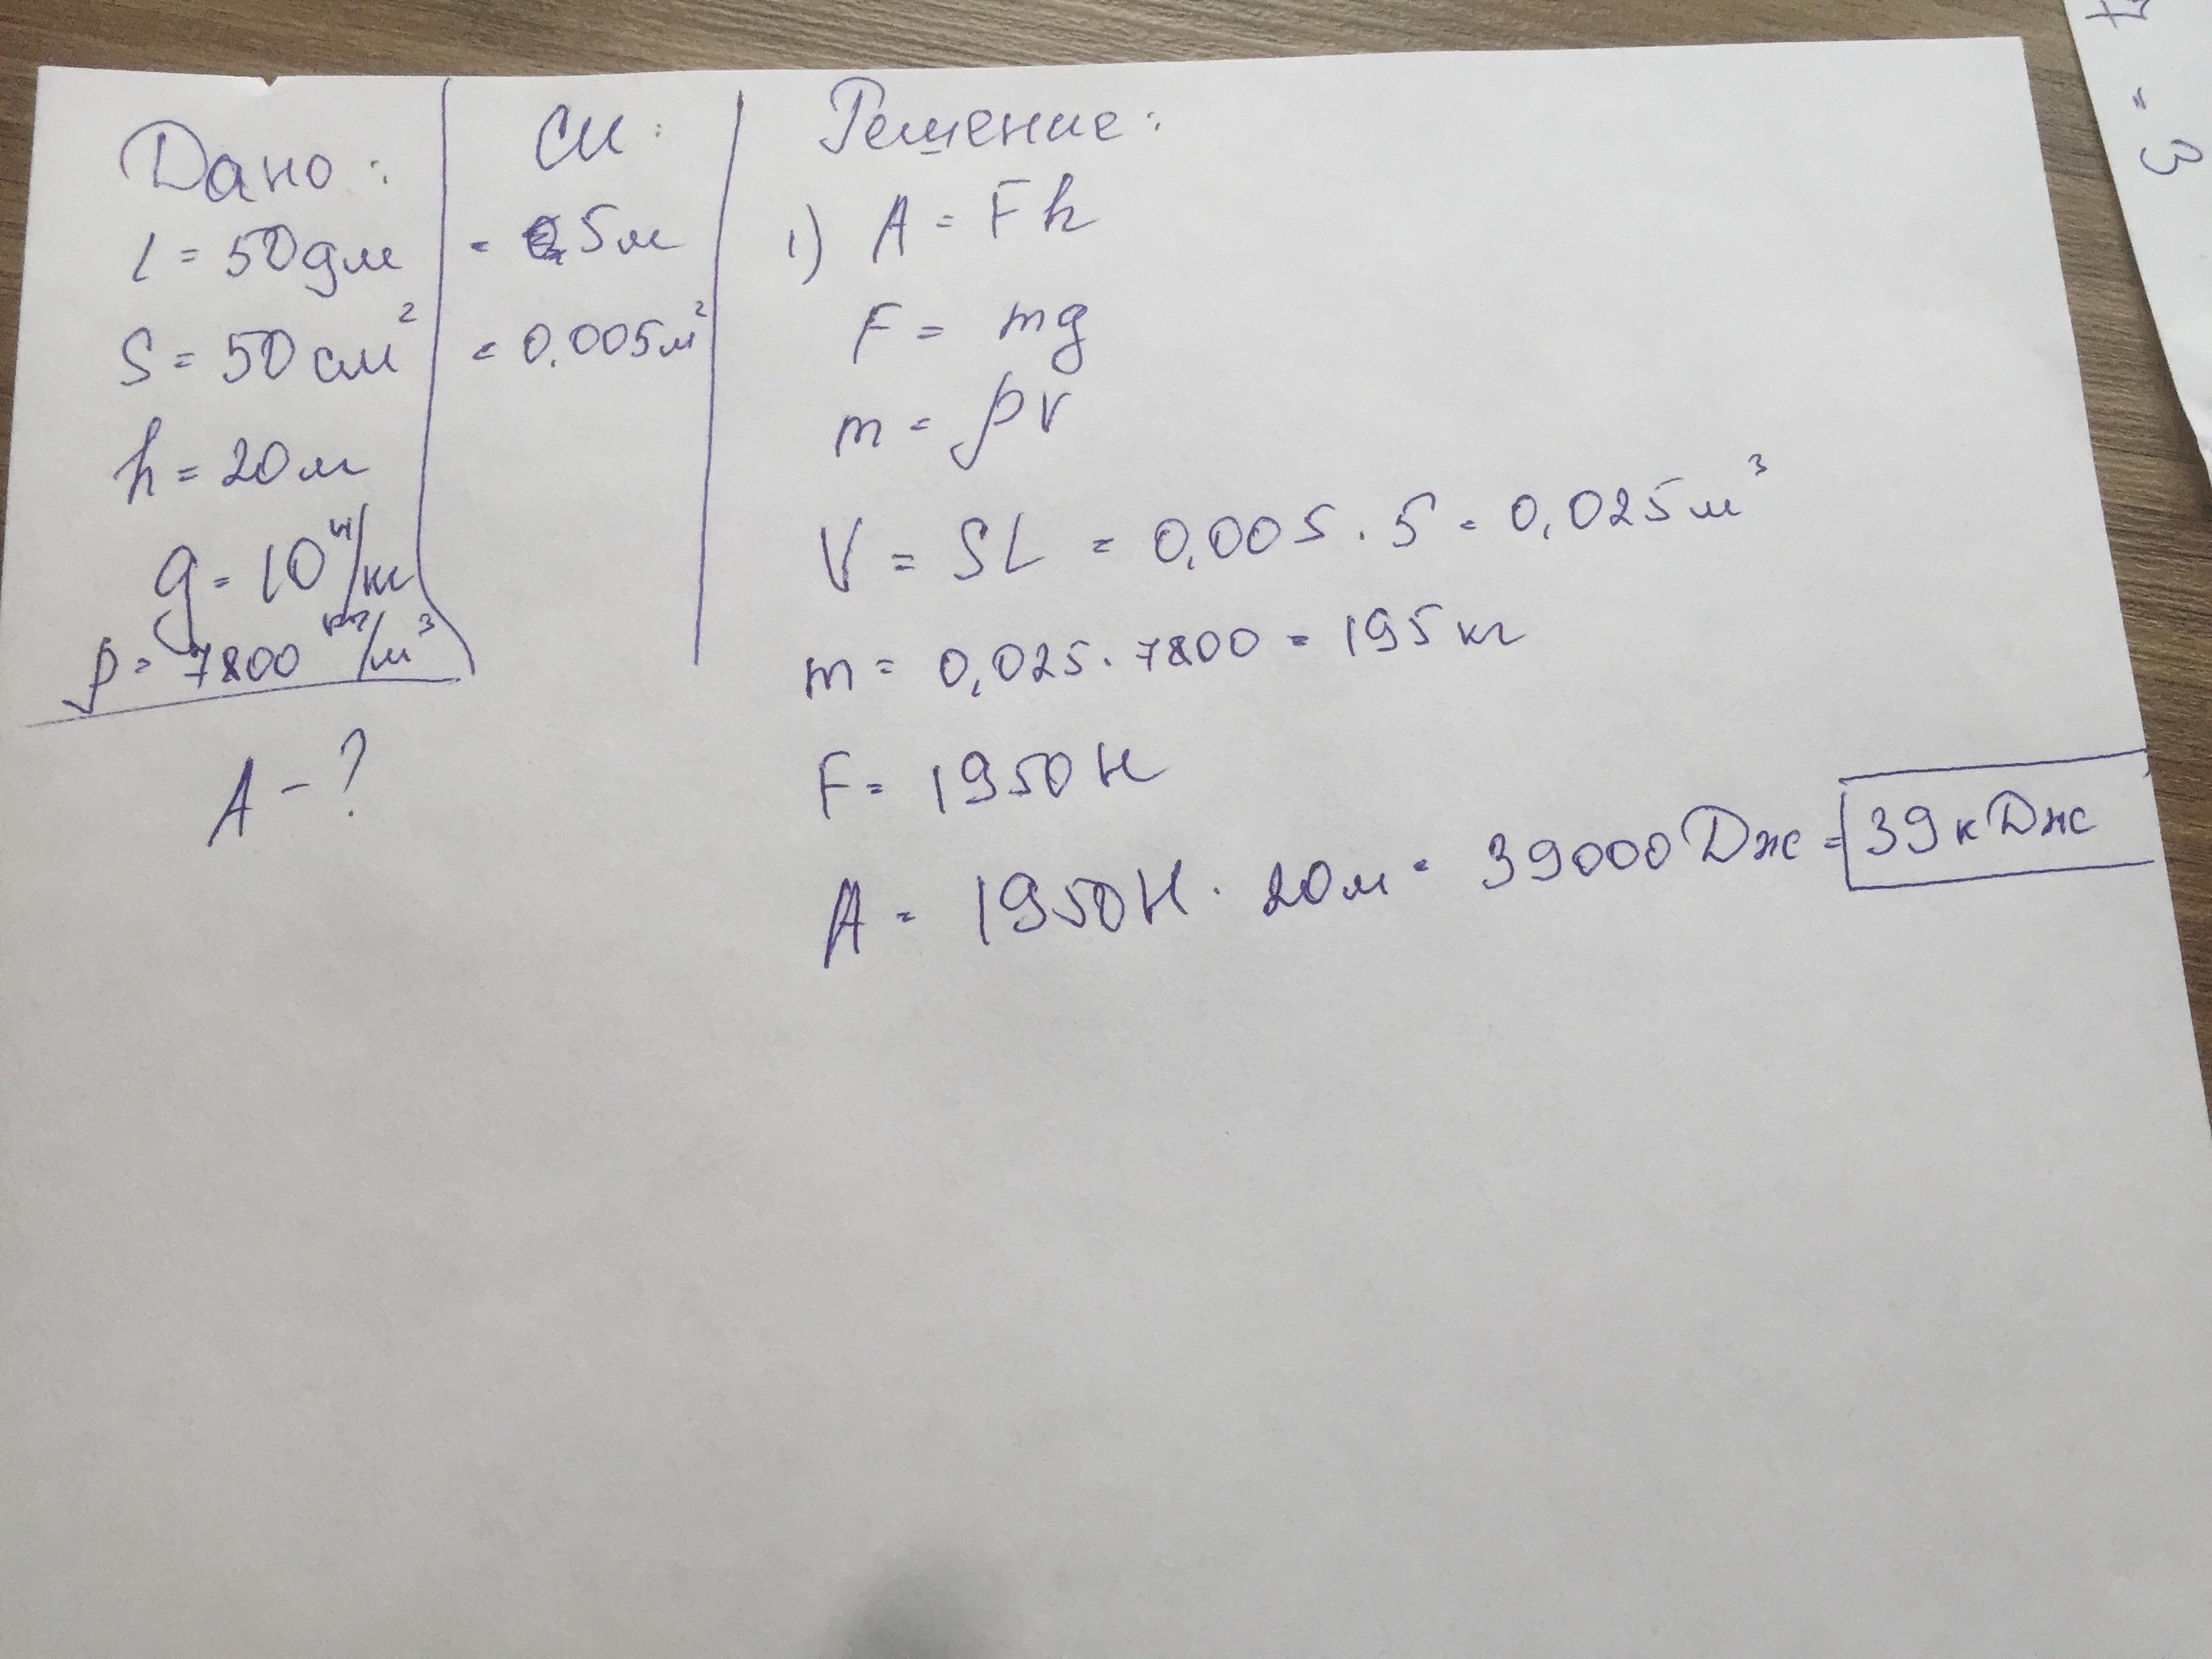 Дано:
l = 50 дм
S = 50 см²
h = 20 м
g = 10 Н/кг
ρ = 7800 кг/м³
A - ?
СИ:
= 5 м
= 0.005 м²
Решение:
1) A = Fh
F = mg
m = ρV
V = SL = 0,005 · 5 = 0,025 м³
m = 0,025 · 7800 = 195 кг
F = 1950 Н
A = 1950 Н · 20 м = 39000 Дж = 39 кДж